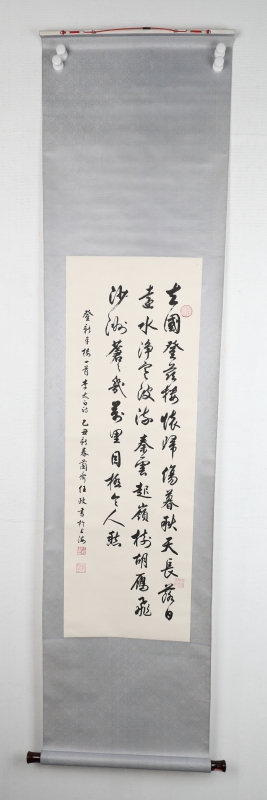 去國登茲樓懷歸傷暮秋天長落日
遠水浄寒波流秦雲起嶺樹胡雁飛
沙洲蒼〻幾萬里目極令人愁
登新平樓一首李太白詩 乙丑新春蘭齋任政書於上海